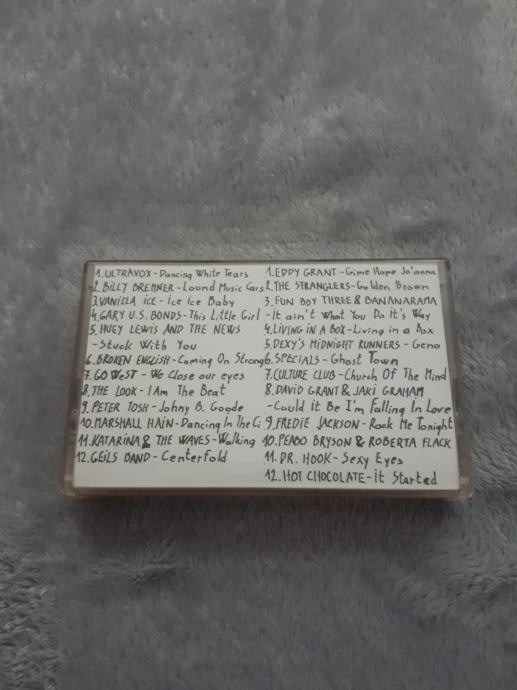 1. ULTRAVOX - Dancing White Tears
2. BILLY BREMNER - Lound Music Cars
3. VANILLA ICE - Ice Ice Baby
4. GARY U.S. BONDS - This Little Girl
5. HUEY LEWIS AND THE NEWS
- Stuck With You
6. BROKEN ENGLISH - Coming On Strong
7. GO WEST - We Close our eyes
8. THE LOOK - I Am The Beat
9. PETER TOSH - Johny B. Goode
10. MARSHALL HAIN - Dancing In The Ci
11. KATARINA & THE WAVES - Walking
12. GEILS BAND - Centerfold
1. EDDY GRANT - Gime Hope Jo'anna
2. THE STRANGLERS - Golden Brown
3. FUN BOY THREE & BANANARAMA
- It ain't What You Do It's Way
4. LIVING IN A BOX - Living in a Box
5. DEXY'S MIDNIGHT RUNNERS - Geno
6. SPECIALS - Ghost Town
7. CULTURE CLUB - Church Of The Mind
8. DAVID GRANT & JAKI GRAHAM
- Could it Be I'm Falling In Love
9. FREDIE JACKSON - Rock Me Tonight
10. PEABO BRYSON & ROBERTA FLACK
11. DR. HOOK - Sexy Eyes
12. HOT CHOCOLATE - it Started